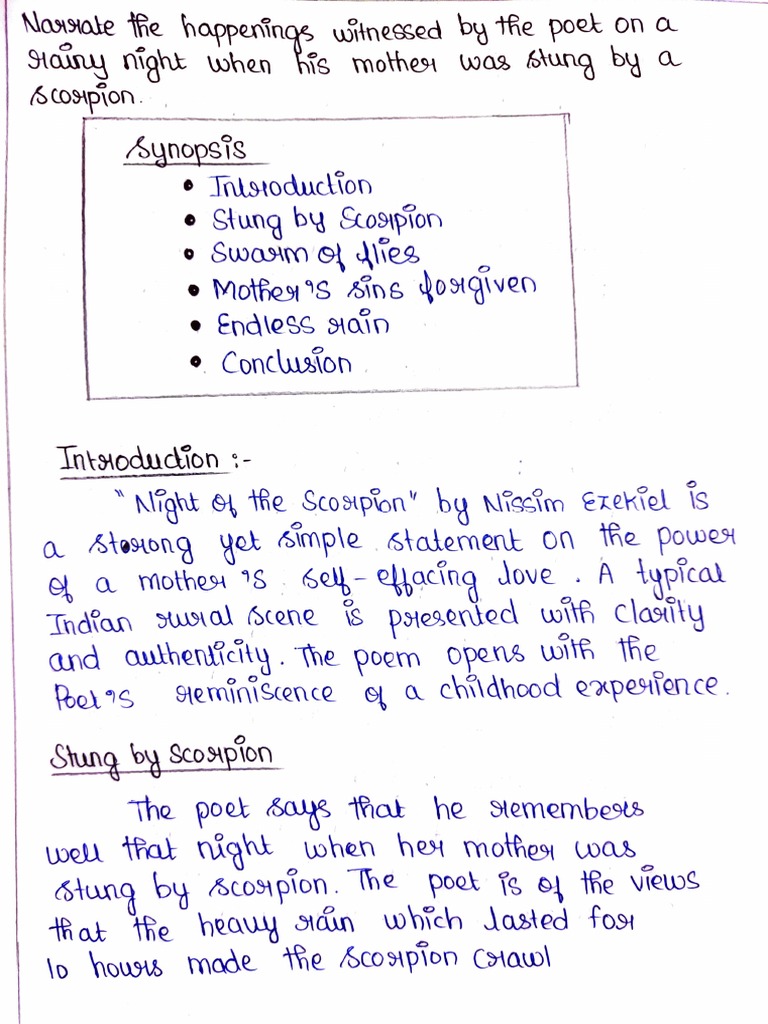 Narrate the happenings witnessed by the poet on a
rainy night when his mother was stung by a
scorpion.
Synopsis
• Introduction
• Stung by Scorpion
• Swarm of flies
• Mother's sins forgiven
• Endless rain
• Conclusion
Introduction :-
"Night of the Scorpion" by Nissim Ezekiel is
a strong yet simple statement on the power
of a mother's self-effacing love. A typical
Indian rural scene is presented with clarity
and authenticity. The poem opens with the
Poet's reminiscence of a childhood experience.
Stung by Scorpion
The poet says that he remembers
well that night when her mother was
stung by scorpion. The poet is of the views
that the heavy rain which lasted for
10 hours made the scorpion crawl